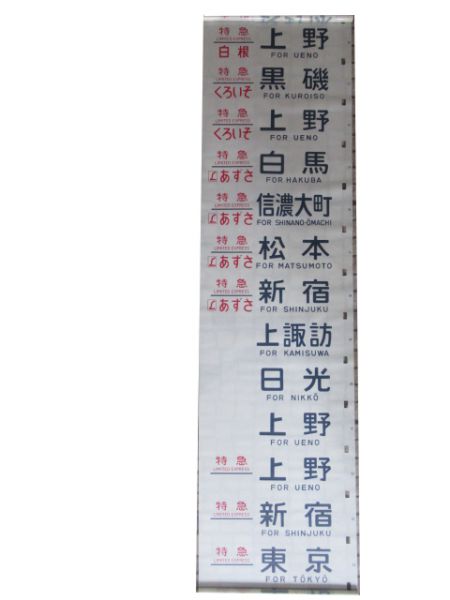 特急 上野
LIMITED EXPRESS
白根 FOR UENO
特急 黒磯
LIMITED EXPRESS
くろいそ FOR KUROISO
特急 上野
LIMITED EXPRESS
くろいそ FOR UENO
特急 白馬
LIMITED EXPRESS
Lあずさ FOR HAKUBA
特急 信濃大町
LIMITED EXPRESS
Lあずさ FOR SHINANO-ŌMACHI
特急 松本
LIMITED EXPRESS
Lあずさ FOR MATSUMOTO
特急 新宿
LIMITED EXPRESS
Lあずさ FOR SHINJUKU
上諏訪
FOR KAMISUWA
日光
FOR NIKKŌ
上野
FOR UENO
特急 上野
LIMITED EXPRESS
FOR UENO
特急 新宿
LIMITED EXPRESS
FOR SHINJUKU
特急 東京
LIMITED EXPRESS
FOR TŌKYŌ